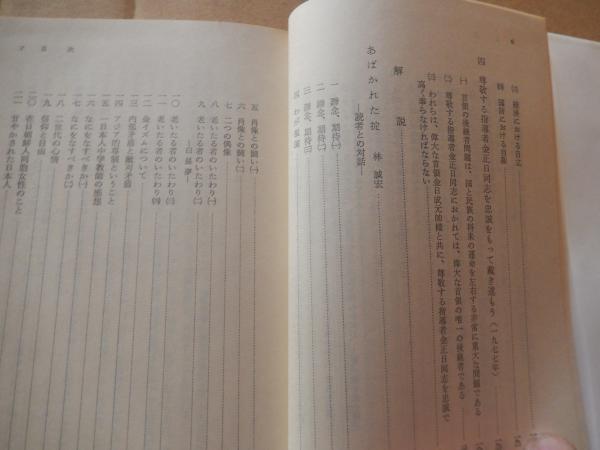 6
㈢ 経済における自立
㈣ 国防における自衛
四 尊敬する指導者金正日同志を忠誠をもって戴き進もう(一九七七年)
㈠ 首領の後継者問題は、国と民族の将来の運命を左右する非常に重大な問題である
㈡ 尊敬する指導者金正日同志におかれては、偉大な首領の唯一の後継者である
㈢ われらは、偉大な首領金日成元帥様と共に、尊敬する指導者金正日同志を忠誠で
高く奉らなければならない
解説
あばかれた掟 林誠宏
―読者との対話―
一 諦念、期待㈠
二 諦念、期待㈡
三 諦念、期待㈢
四 わが風図
五 肖像との闘い㈠
六 肖像との闘い㈡
七 二つの偶像
八 老いたる者のいたわり㈠
九 老いたる者のいたわり㈡
一〇 老いたる者のいたわり㈢
一一 老いたる者のいたわり㈣
一二 金イズムについて
一三 内部矛盾と敵対矛盾
一四 アジア的専制ということ
一五 一日本人中学教師の感想
一六 なにをなすべきか㈠
一七 なにをなすべきか㈡
一八 二世代の心情
一九 信仰と自由
二〇 在日朝鮮人同胞女性のこと
二一 甘やかされた日本人
7 目次